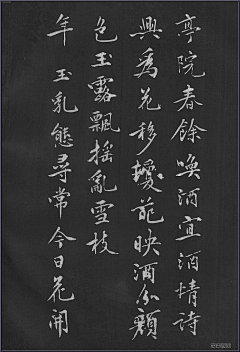 亭院春餘喚酒宜酒情詩
興為花移擾範映酒分顆
色玉露飄搖亂雪枝
年 玉乳態尋常今日花開